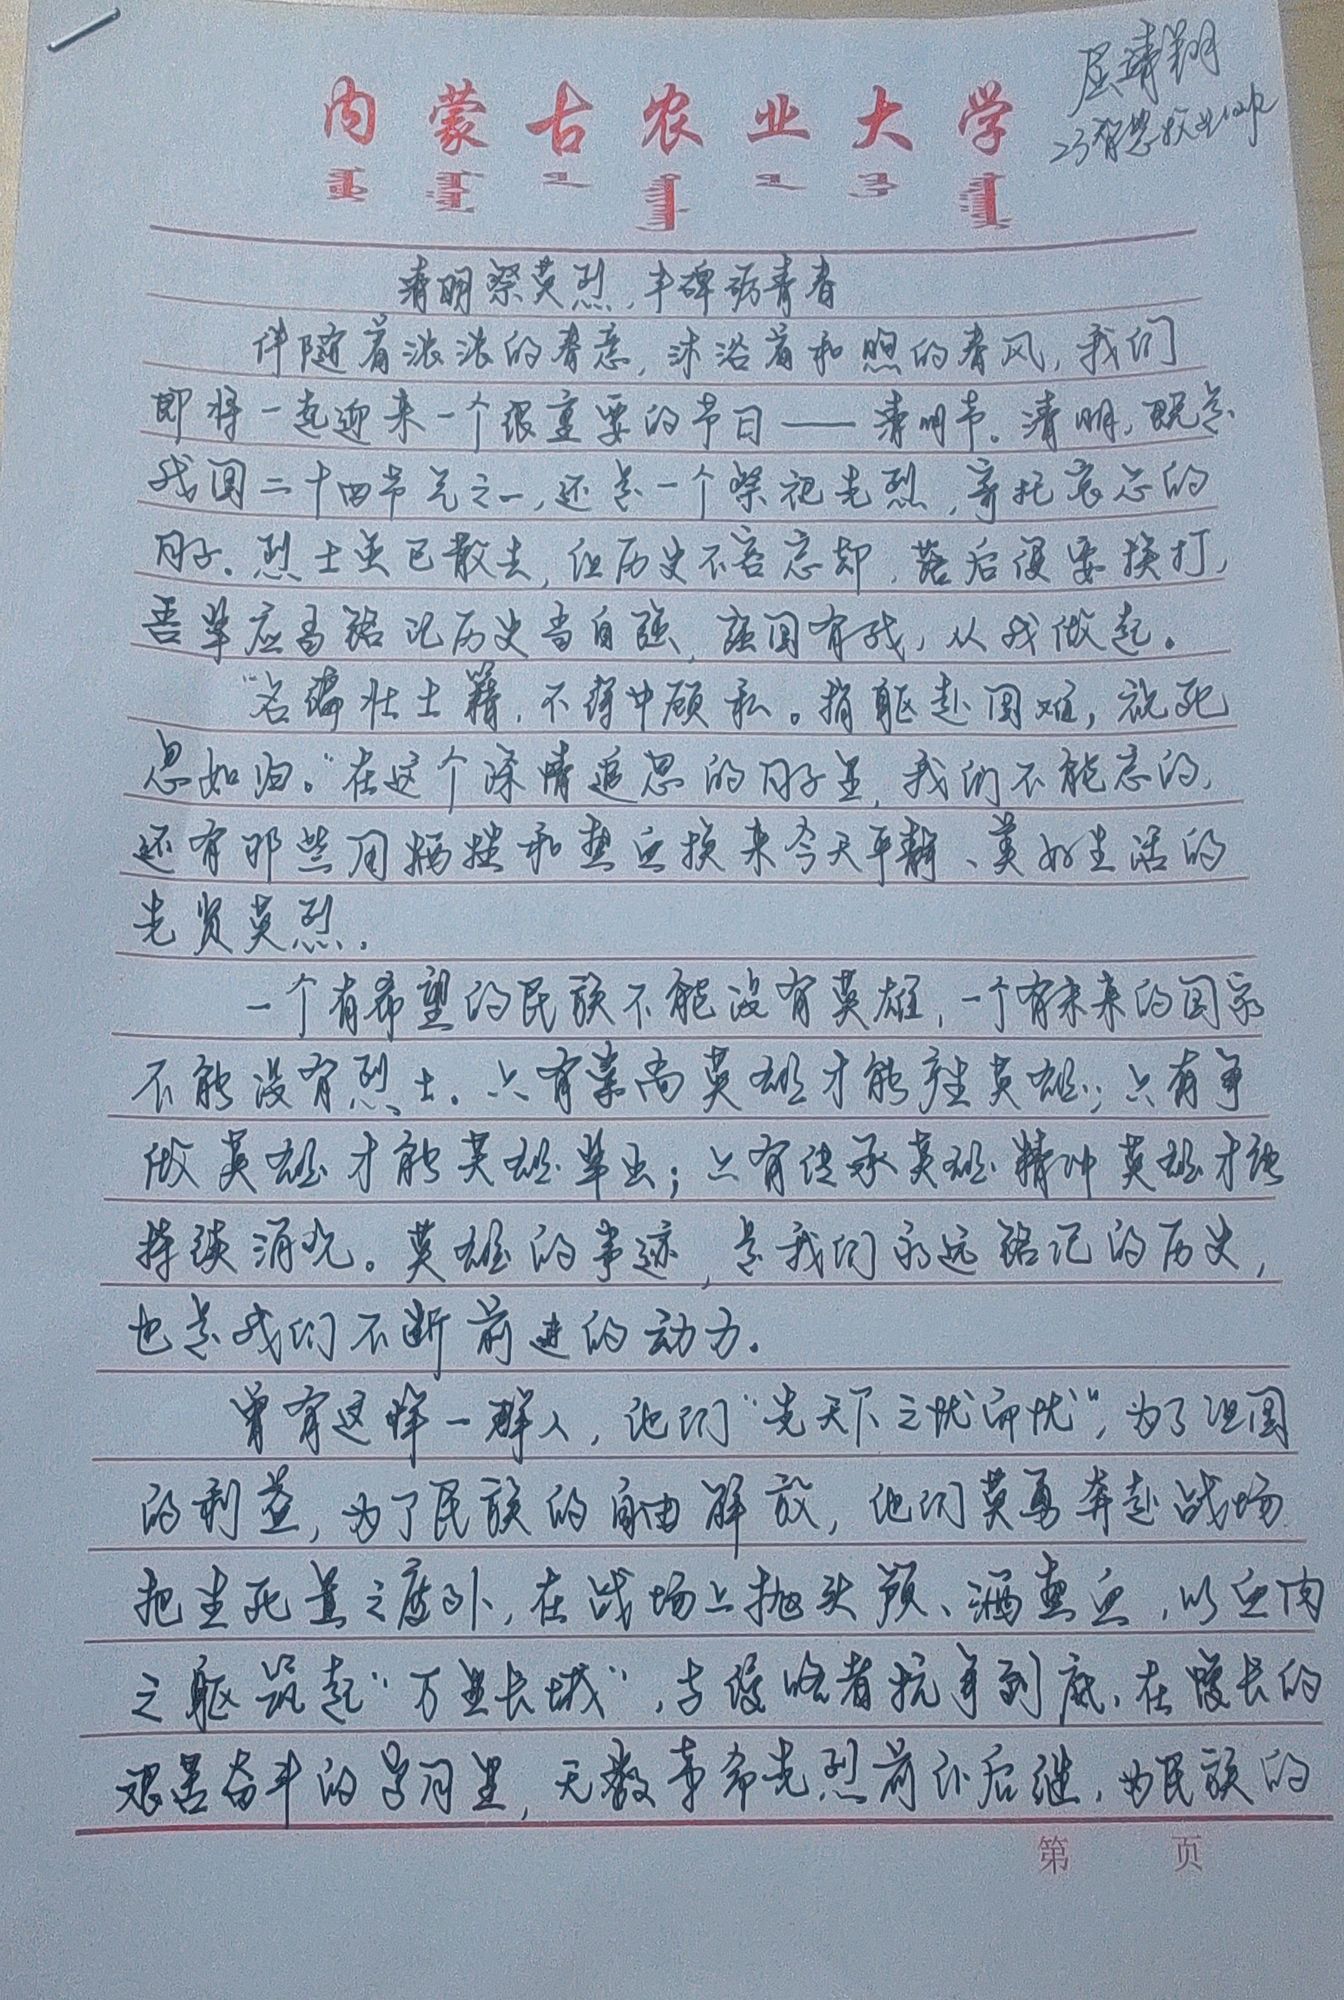 屈靖翔
23智慧牧业
内蒙古农业大学
清明祭英烈，丰碑砺青春
伴随着浓浓的春意，沐浴着和煦的春风，我们
即将一起迎来一个很重要的节日——清明节。清明，既是
我国二十四节气之一，还是一个祭祀先烈，寄托哀思的
日子。烈士虽已散去，但历史不容忘却，落后便要挨打，
吾辈应当铭记历史当自强，强国有我，从我做起。
“名编壮士籍，不得中顾私。捐躯赴国难，视死
忽如归。”在这个深情追思的日子里，我们不能忘的，
还有那些用牺牲和热血换来今天平静、美好生活的
先贤英烈。
一个有希望的民族不能没有英雄，一个有未来的国家
不能没有烈士。只有崇尚英雄才能产生英雄；只有争
做英雄才能英雄辈出；只有传承英雄精神英雄才能
持续涌现。英雄的事迹，是我们永远铭记的历史，
也是我们不断前进的动力。
曾有这样一群人，他们“先天下之忧而忧”，为了祖国
的利益，为了民族的自由解放，他们英勇奔赴战场
把生死置之度外，在战场上抛头颅、洒热血，以血肉
之躯筑起“万里长城”，与侵略者抗争到底。在漫长的
艰苦奋斗的岁月里，无数革命先烈前仆后继，为民族的
第 页